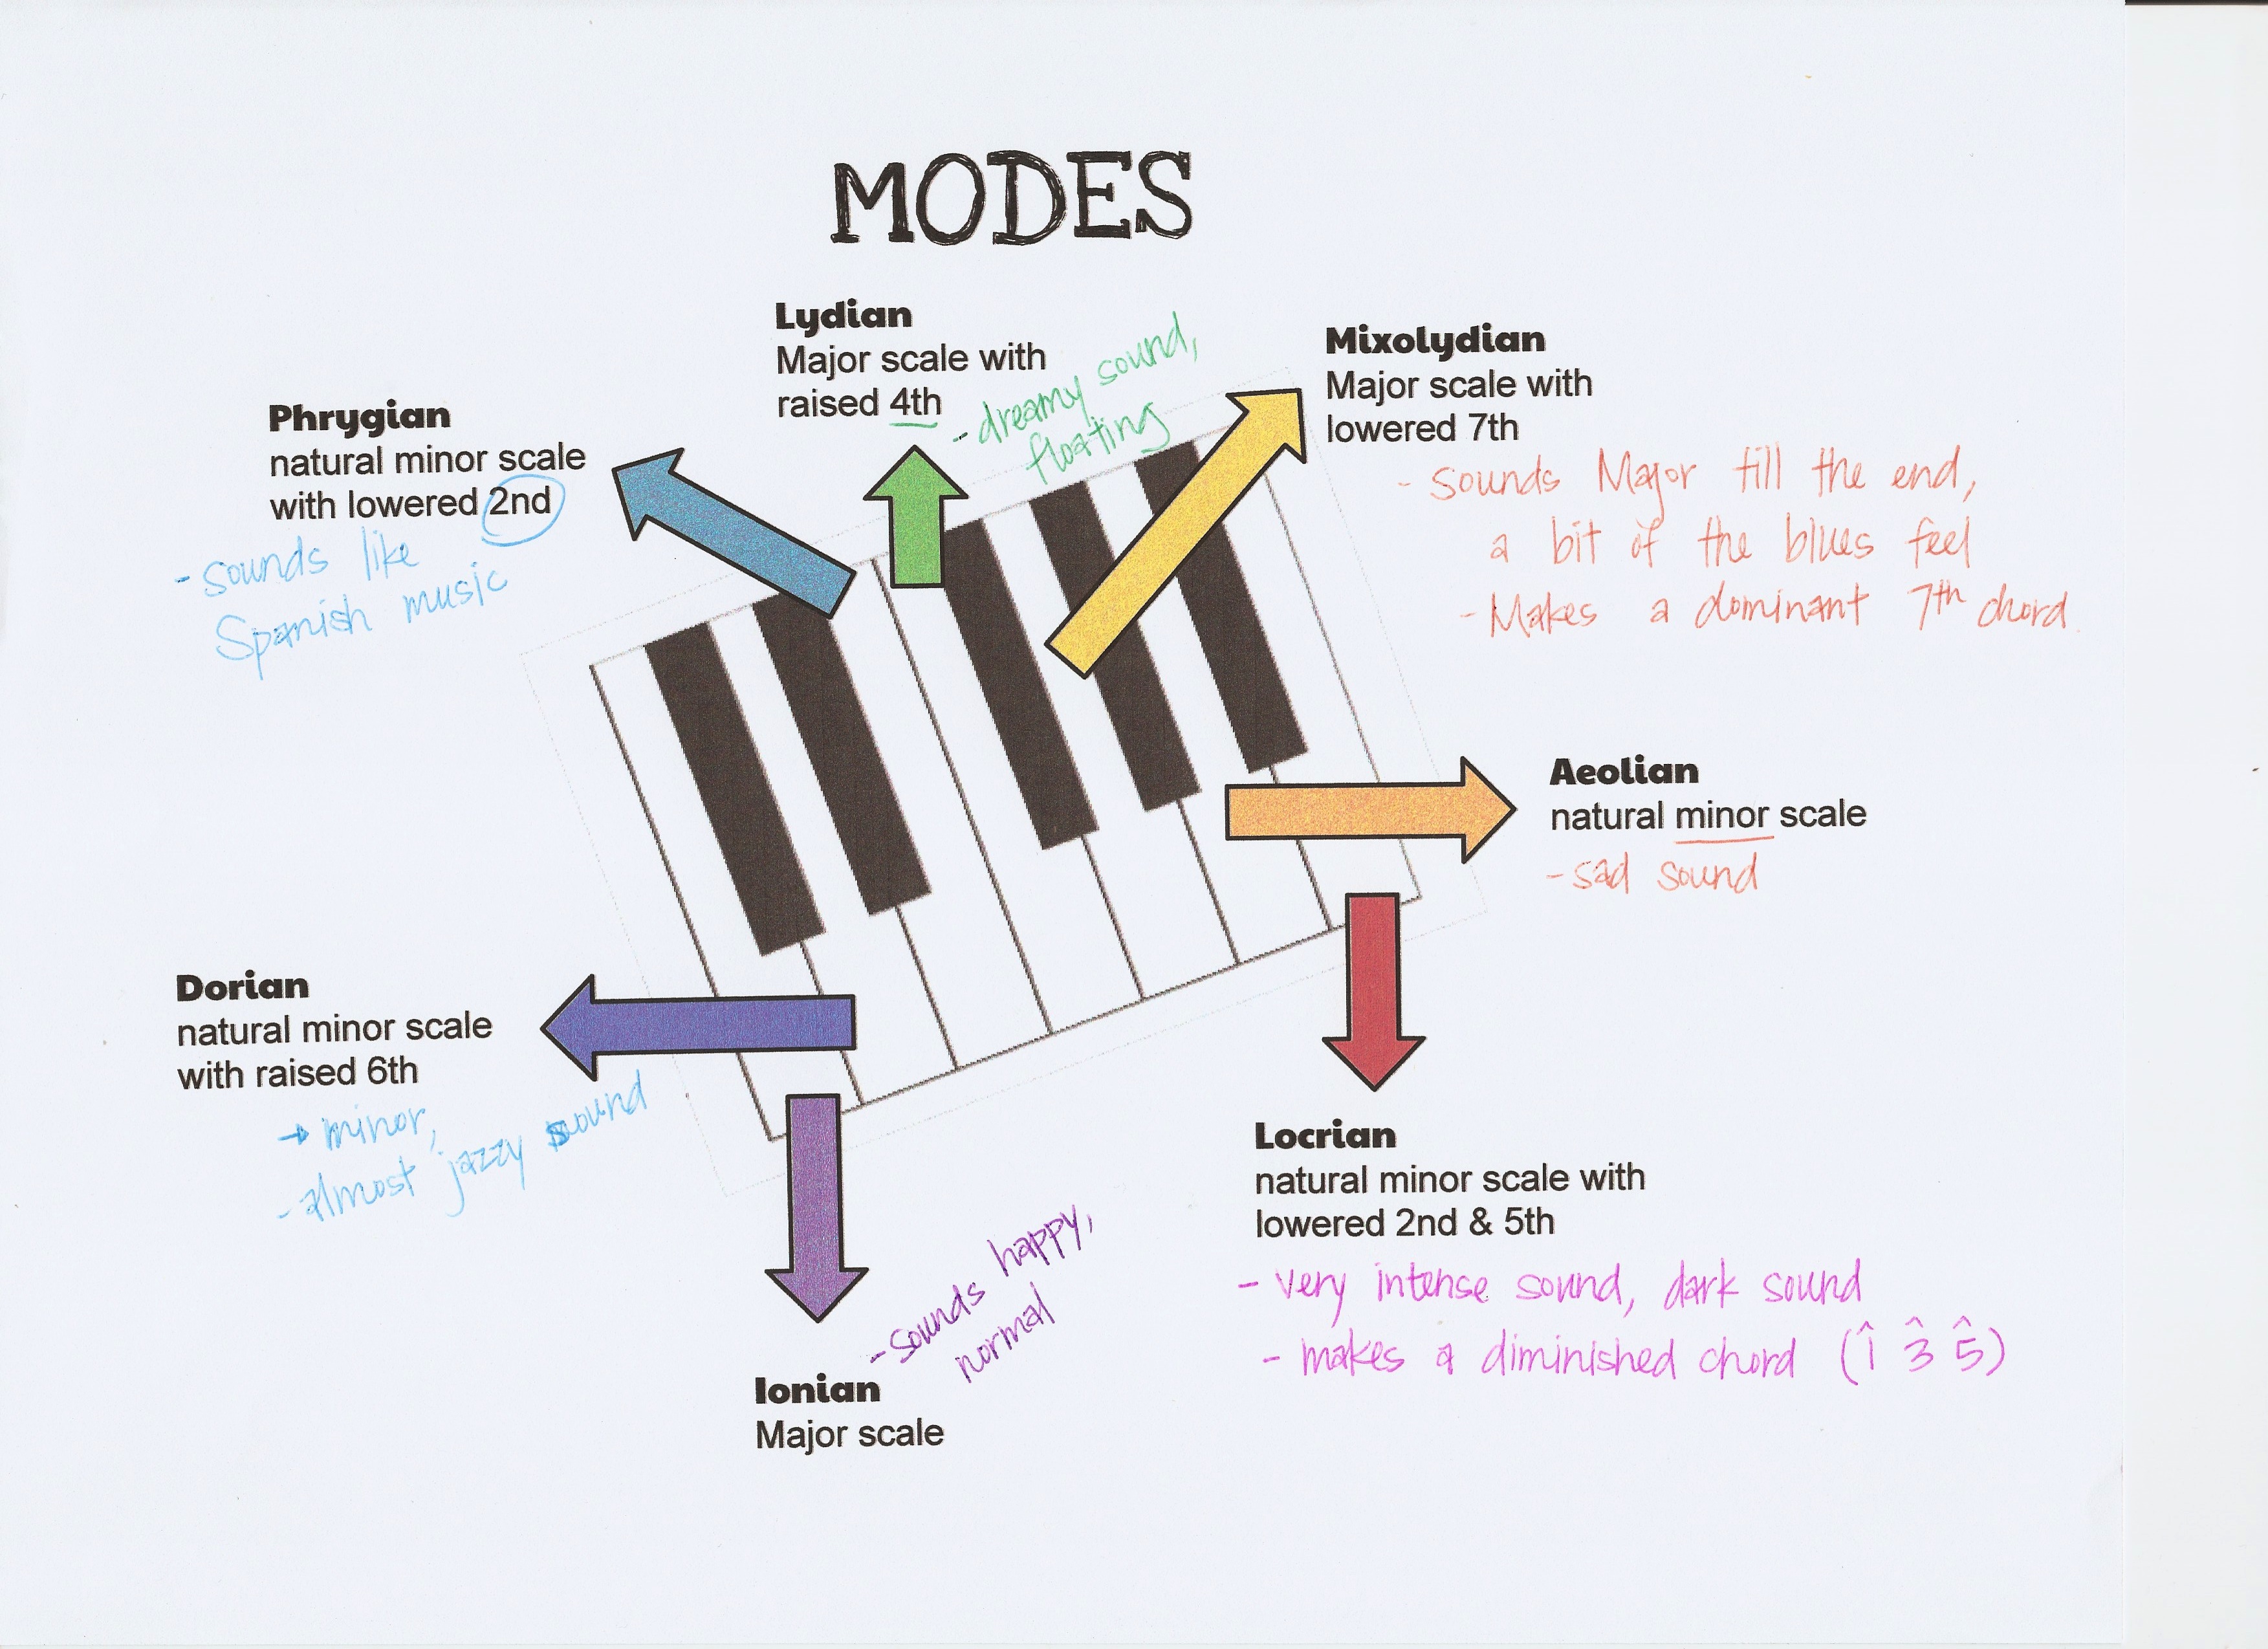 MODES
Lydian
Major scale with
raised 4th
- dreamy sound,
floating
Mixolydian
Major scale with
lowered 7th
- sounds Major till the end,
a bit of the blues feel
- Makes a dominant 7th chord.
Phrygian
natural minor scale
with lowered 2nd
- sounds like
Spanish music
Aeolian
natural minor scale
- sad sound
Dorian
natural minor scale
with raised 6th
→ minor,
- almost jazzy sound
Locrian
natural minor scale with
lowered 2nd & 5th
- very intense sound, dark sound
- makes a diminished chord (1̂ 3̂ 5̂)
- sounds happy,
normal
Ionian
Major scale